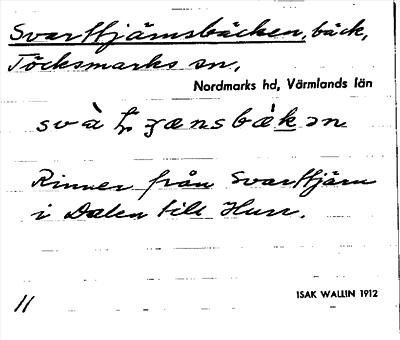 Svarttjärnsbäcken, bäck,
Töcksmarks sn,
Nordmarks hd, Värmlands län
Rinner från Svarttjärn
i Dalen till Hurr.
11
ISAK WALLIN 1912